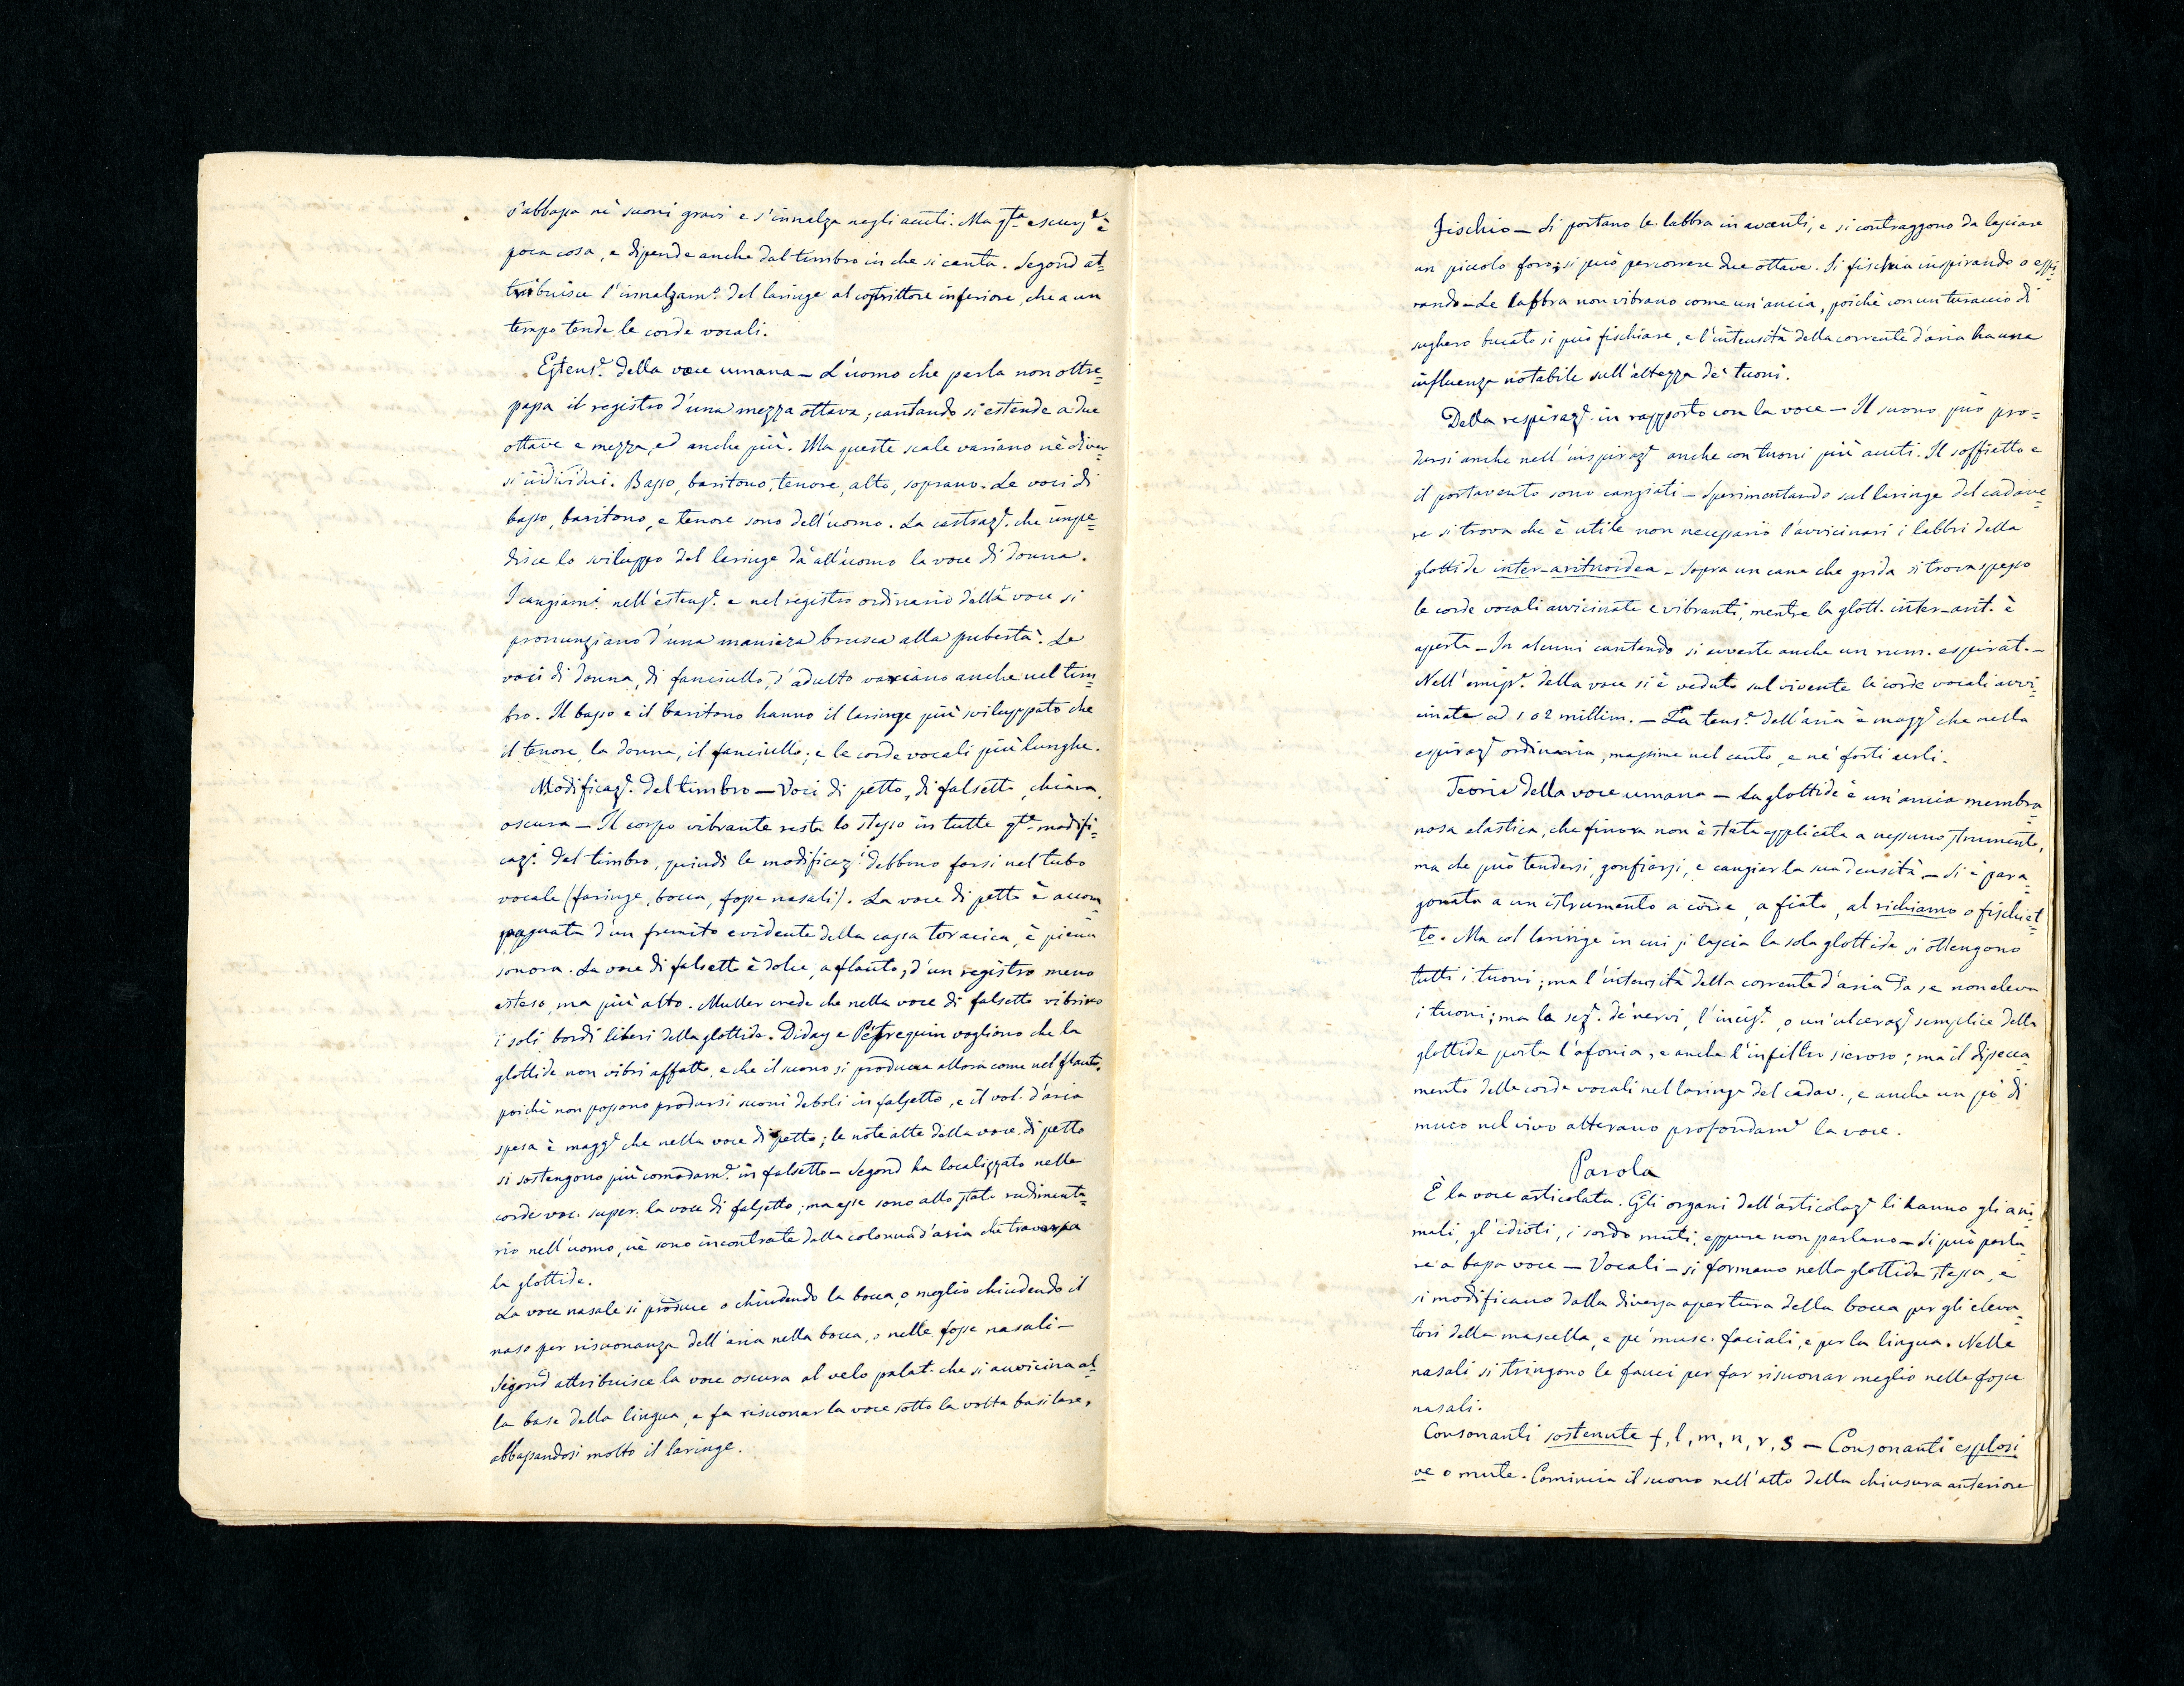 s'abbassa nè suoni gravi e s'innalza negli acuti. Ma qta escurse è
poca cosa, e dipende anche dal timbro in che si canta. Segond at=
tribuisce l'innalzamo del laringe al costrittore inferiore, che a un
tempo tende le corde vocali.
Estense della voce umana — L'uomo che parla non oltre=
passa il registro d'una mezza ottava; cantando si estende a due
ottave e mezza, ed anche più. Ma queste scale variano nè diver=
si individui. Basso, baritono, tenore, alto, soprano. Le voci di
basso, baritono, e tenore sono dell'uomo. La castraze che impe=
disce lo sviluppo del laringe dà all'uomo la voce di donna.
I cangiami nell'estense e nel registro ordinario della voce si
pronunziano d'una maniera brusca alla pubertà. Le
voci di donna, di fanciullo, d'adulto variano anche nel tim=
bro. Il basso e il baritono hanno il laringe più sviluppato che
il tenore, la donna, il fanciullo; e le corde vocali più lunghe.
Modificaze del timbro — Voci di petto, di falsetto, chiara,
oscura — Il corpo vibrante resta lo stesso in tutte qte modifi=
cazi del timbro, quindi le modificazi debbono farsi nel tubo
vocale (faringe, bocca, fosse nasali). La voce di petto è accom=
pagnata d'un fremito evidente della cassa toracica, è piena
sonora. La voce di falsetto è dolce, a flauto, d'un registro meno
esteso, ma più alto. Muller crede che nella voce di falsetto vibrino
i soli bordi liberi della glottide. Diday e Pétrequin vogliono che la
glottide non vibri affatto, e che il suono si produca allora come nel flauto,
poichè non possono prodursi suoni deboli in falsetto, e il vol. d'aria
spesa è magge che nella voce di petto; le note alte della voce di petto
si sostengono più comodame in falsetto — Segond ha localizzato nelle
corde voc. super. la voce di falsetto; ma esse sono allo stato rudimenta=
rio nell'uomo, nè sono incontrate dalla colonna d'aria che traversa
la glottide.
La voce nasale si produce o chiudendo la bocca, o meglio chiudendo il
naso per risuonanza dell'aria nella bocca, o nelle fosse nasali —
Segond attribuisce la voce oscura al velo palat. che si avvicina al=
la base della lingua, e fa risuonar la voce sotto la volta basilare,
abbassandosi molto il laringe.
Fischio — Si portano le labbra in avanti, e si contraggono da lasciare
un piccolo foro; si può percorrere due ottave. Si fischia inspirando o espi=
rando — Le labbra non vibrano come un'ancia, poichè con un turaccio di
sughero bucato si può fischiare, e l'intensità della corrente d'aria ha una
influenza notabile sull'altezza dè tuoni.
Della respiraze in rapporto con la voce — Il suono può pro=
dursi anche nell'inspiraze anche con tuoni più acuti. Il soffietto e
il portavento sono cangiati — Sperimentando sul laringe del cadave=
re si trova che è utile non necessario l'avvicinarsi i labbri della
glottide inter-aritnoidea — Sopra un cane che grida si trova spesso
le corde vocali avvicinate e vibranti, mentre la glott. inter-arit. è
aperta — In alcuni cantando si avverte anche un rum. espirat. —
Nell'emisse della voce si è veduto sul vivente le corde vocali avvi=
cinate ad 1 o 2 millim. — La tense dell'aria è magge che nella
espiraze ordinaria, massime nel canto, e nè forti urli.
Teorie della voce umana — La glottide è un'ancia membra=
nosa elastica, che finora non è stata applicata a nessuno strumento,
ma che può tendersi, gonfiarsi, e cangiar la sua densità — Si è para=
gonata a un istrumento a corde, a fiato, al richiamo o fischiet=
to. Ma col laringe in cui si lascia la sola glottide si ottengono
tutti i tuoni; ma l'intensità della corrente d'aria da se non eleva
i tuoni; ma la seze dè nervi, l'incise, o un'ulceraze semplice della
glottide porta l'afonia, e anche l'infiltro sieroso; ma il dissecca=
mento delle corde vocali nel laringe del cadav., e anche un pò di
muco nel vivo alterano profondame la voce.
Parola
È la voce articolata. Gli organi dell'articolaze li hanno gli ani=
mali, gl'idioti, i sordo muti, eppure non parlano — Si può parla=
re a bassa voce — Vocali — si formano nella glottide stessa, e
si modificano dalla diversa apertura della bocca per gli eleva=
tori della mascella, e pe' musc. faciali, e per la lingua. Nelle
nasali si stringono le fauci per far risuonar meglio nelle fosse
nasali.
Consonanti sostenute f, l, m, n, r, s — Consonanti esplosi
ve o mute. Comincia il suono nell'atto della chiusura anteriore